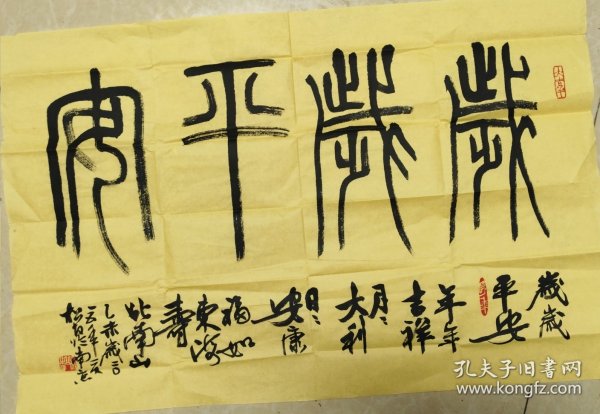 歲歲平安
歲歲
平安
年年
吉祥
月月
大利
日日
安康
福如
東海
壽
比南山
乙未歲
孔夫子旧书网
www.kongfz.com